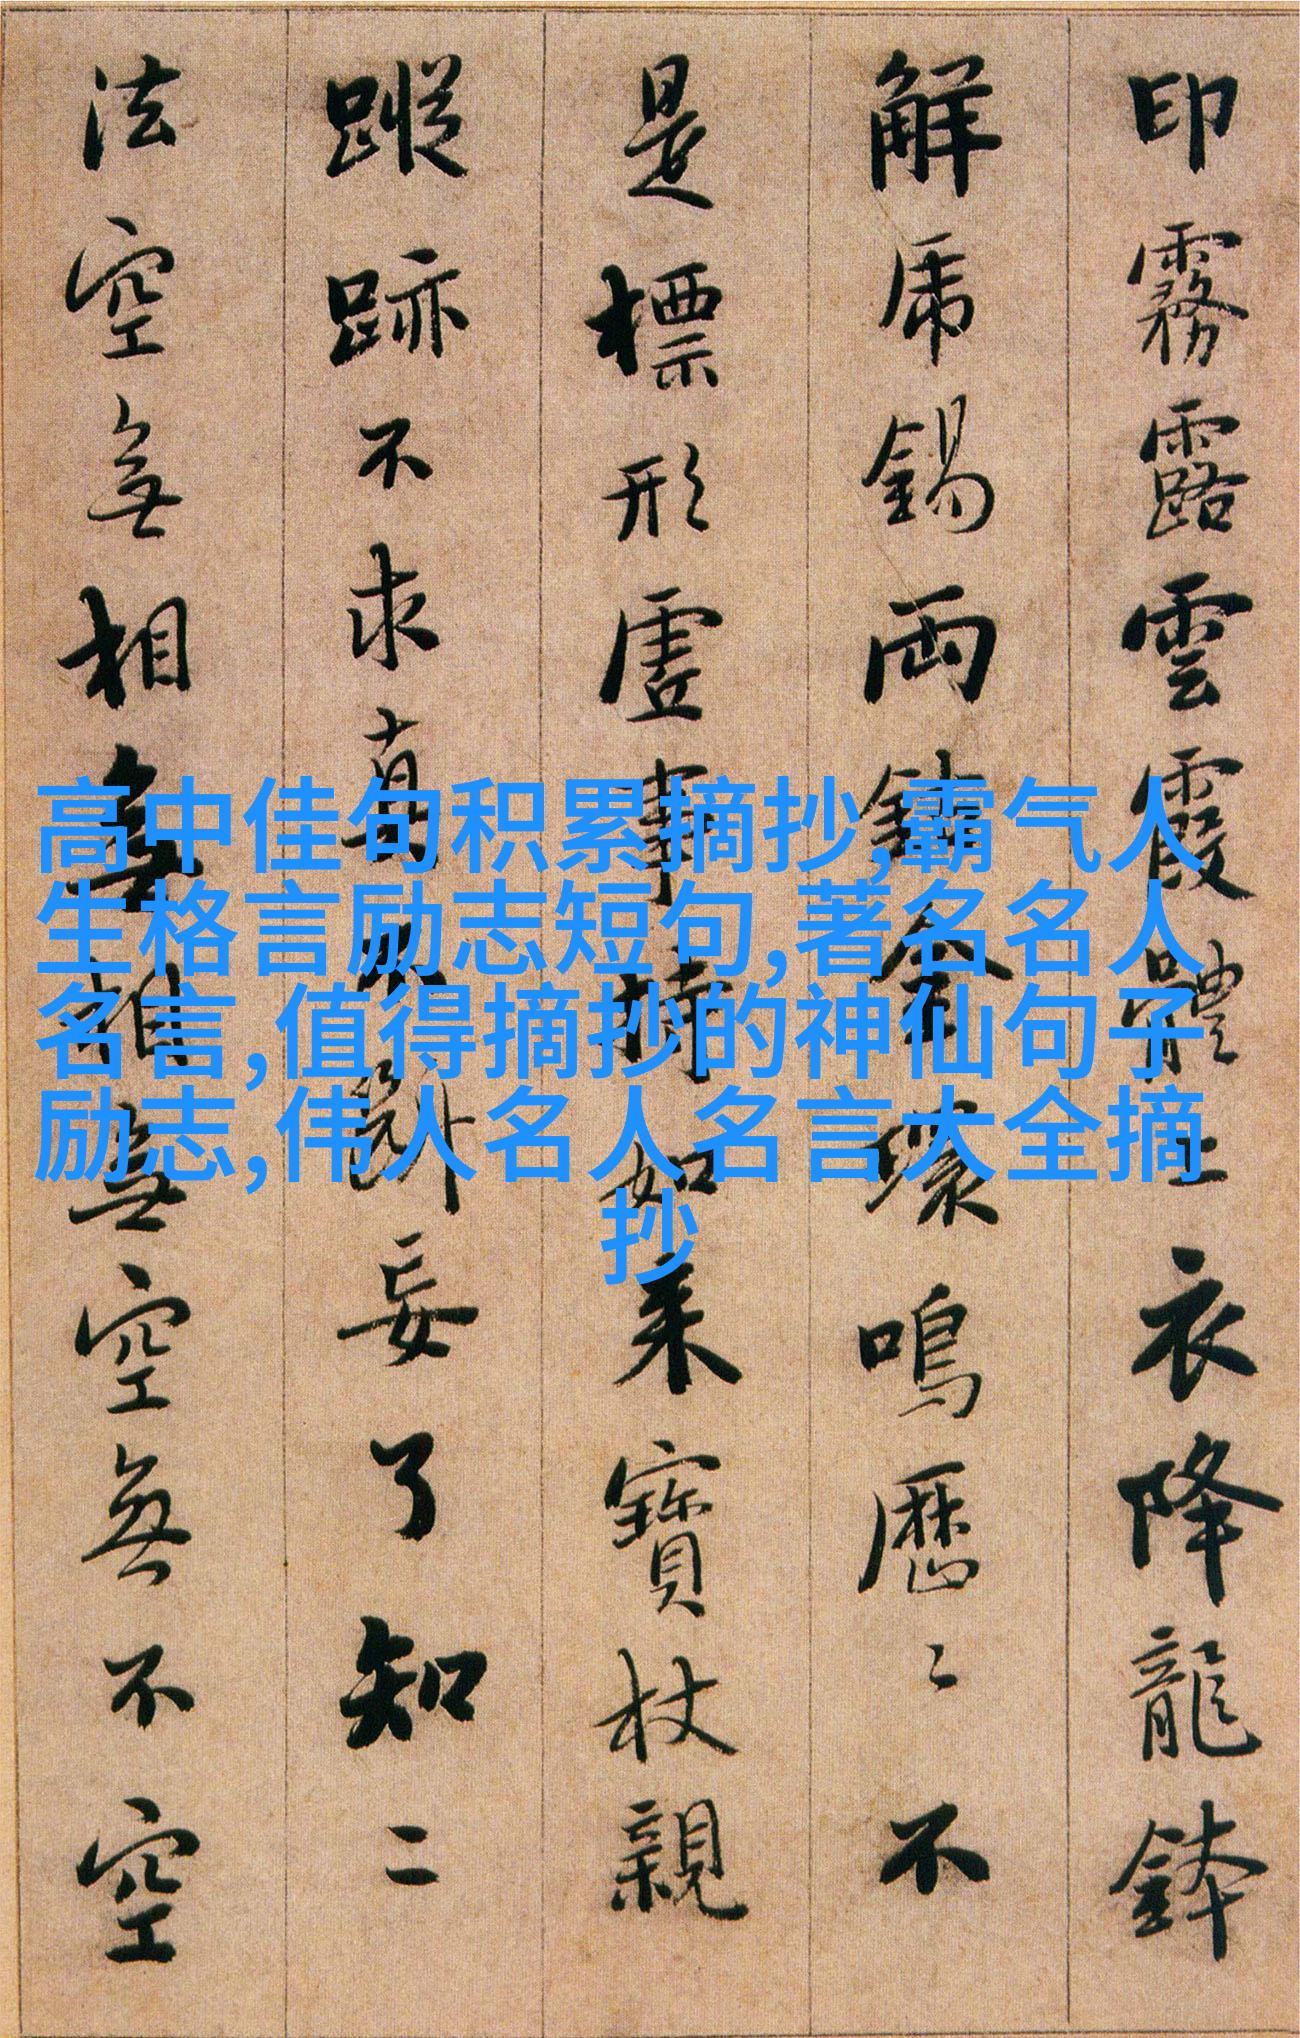 印霧露雲霞體上衣降龍鉢
解虎錫兩鈷金環鳴歷〻不
是標形虛事持如來寶杖親
蹤跡不求真不斷妄了知二
法空無相無相無空無不空
高中佳句积累摘抄,霸气人
生格言励志短句,著名名人
名言,值得摘抄的神仙句子
励志,伟人名人名言大全摘
抄